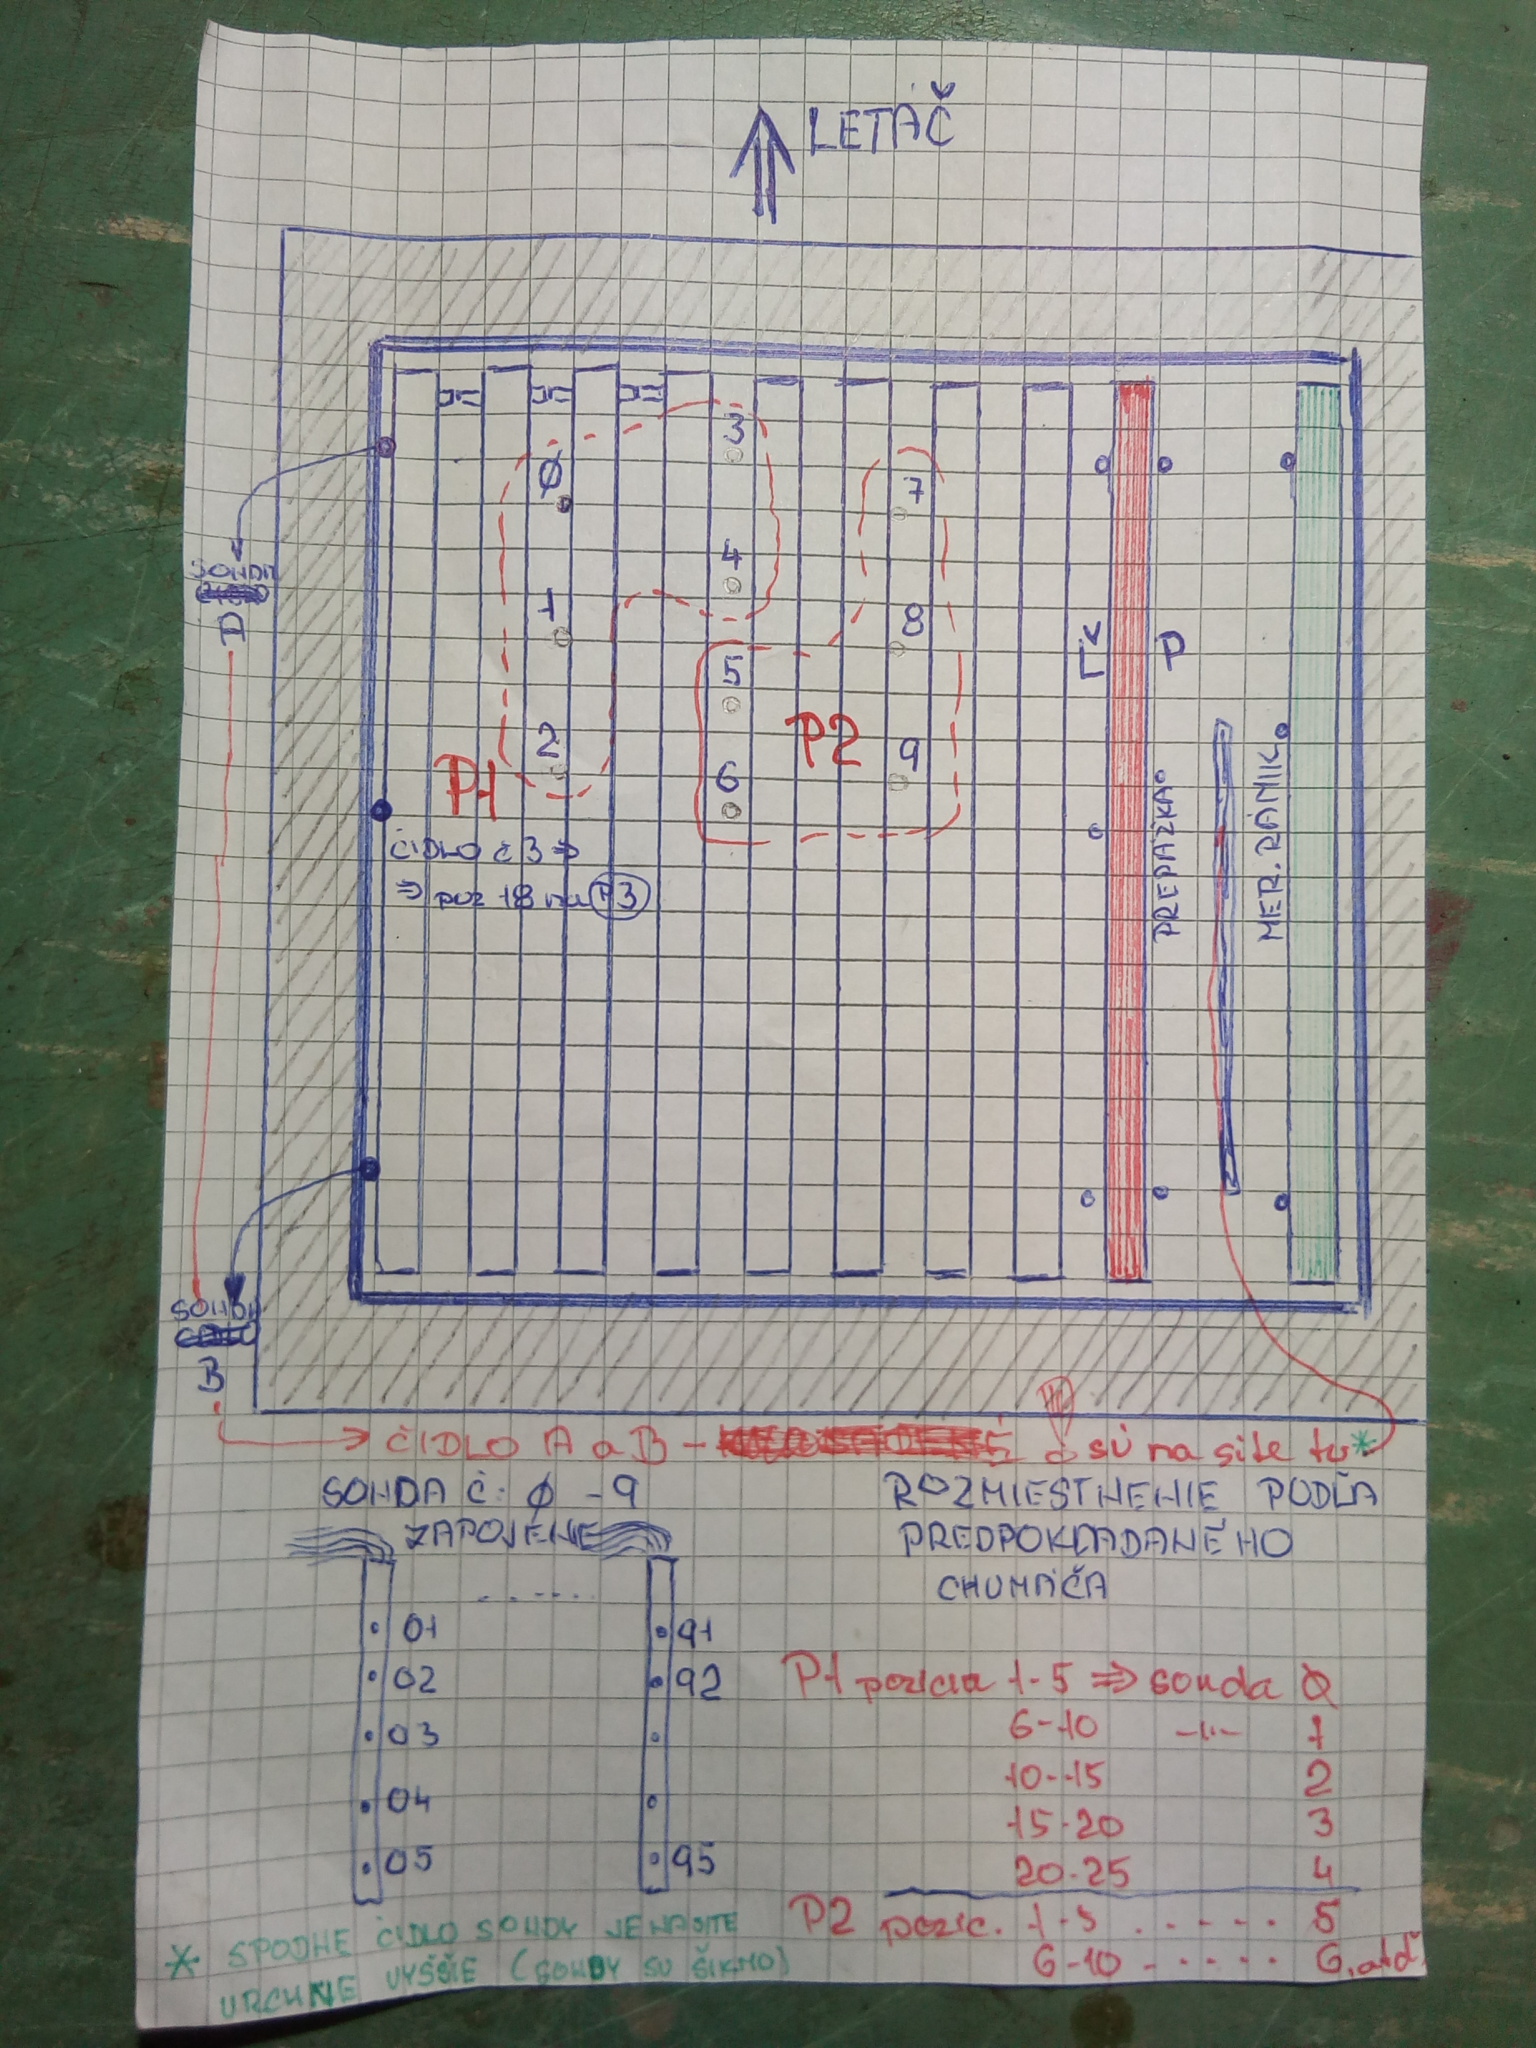 LETÁČ
3
Ø
7
4
1
8
5
2
6
9
P1
P2
SONDA
D
ĽK
P
ČIDLO č 3 ⇒
⇒ poz 18 na P3
PREPÁŽKA
MER. RÁMIK
SONDA
B
ČIDLO A a B - sú na site tu*
SONDA Č: Ø - 9
ZAPOJENIE
ROZMIESTNENIE PODĽA
PREDPOKLADANÉHO
CHUMÁČA
01
02
03
04
05
91
92
95
P1 pozícia 1-5 ⇒ sonda Ø
6-10 -"- 1
10-15 2
15-20 3
20-25 4
P2 pozíc. 1-5 ...... 5
6-10 ..... 6, atď.
* SPODNÉ ČIDLO SONDY JE NA SITE
VRCHNÉ VYŠŠIE (SONDY SÚ ŠIKMO)